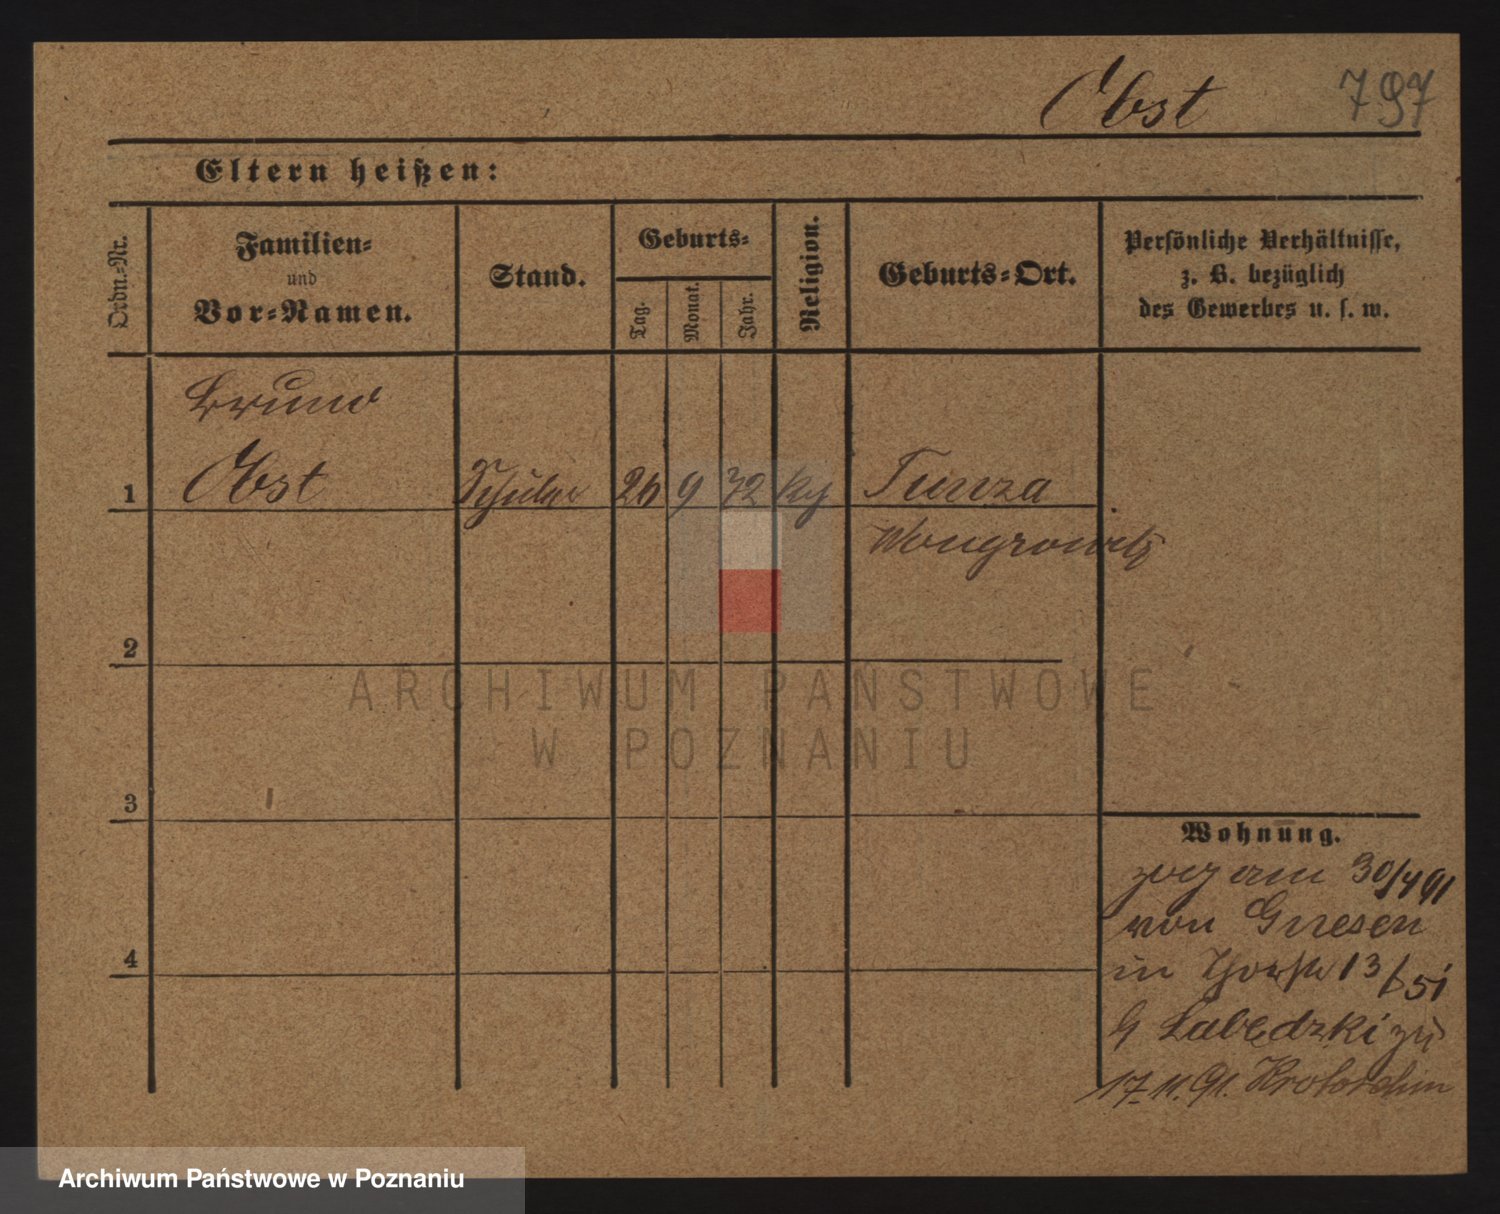 Obst 797
Eltern heißen:
Ordn.-Nr.
Familien-
und
Vor-Namen.
Stand.
Geburts-
Tag.
Monat.
Jahr.
Religion.
Geburts-Ort.
Persönliche Verhältnisse,
z. B. bezüglich
des Gewerbes u. s. w.
Bruno
1 Obst Schüler 26 9 72 Tunza
Wongrowitz
2
3
4
Wohnung.
zog am 30/4 91
von Gnesen
in 13/
Labędzki zu
17.11.91. Krotoschin
ARCHIWUM PAŃSTWOWE
W POZNANIU
Archiwum Państwowe w Poznaniu